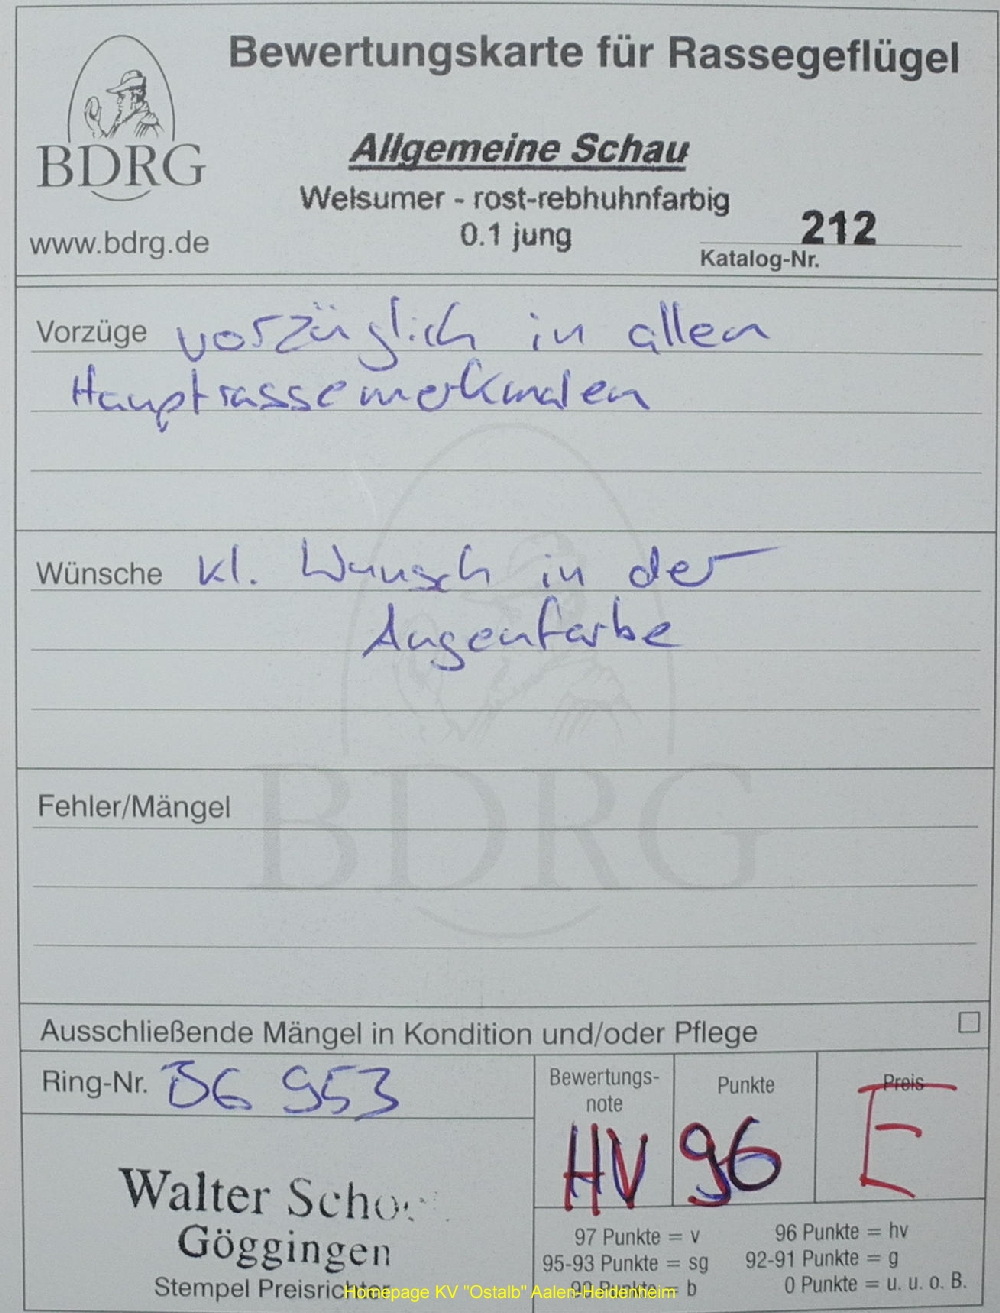 Bewertungskarte für Rassegeflügel
BDRG
www.bdrg.de
Allgemeine Schau
Welsumer - rost-rebhuhnfarbig
0.1 jung
212
Katalog-Nr.
Vorzüge vorzüglich in allen
Hauptrassemerkmalen
Wünsche kl. Wunsch in der
Augenfarbe
BDRG
Fehler/Mängel
Ausschließende Mängel in Kondition und/oder Pflege
Ring-Nr. 953
Bewertungs-
note
HV
Punkte
96
Preis
E
Walter
Göggingen
Stempel Preisrichter
97 Punkte = v
96 Punkte = hv
95-93 Punkte = sg
92-91 Punkte = g
90 Punkte = b
0 Punkte = u. u. o. B.
Homepage KV "Ostalb" Aalen-Heidenheim